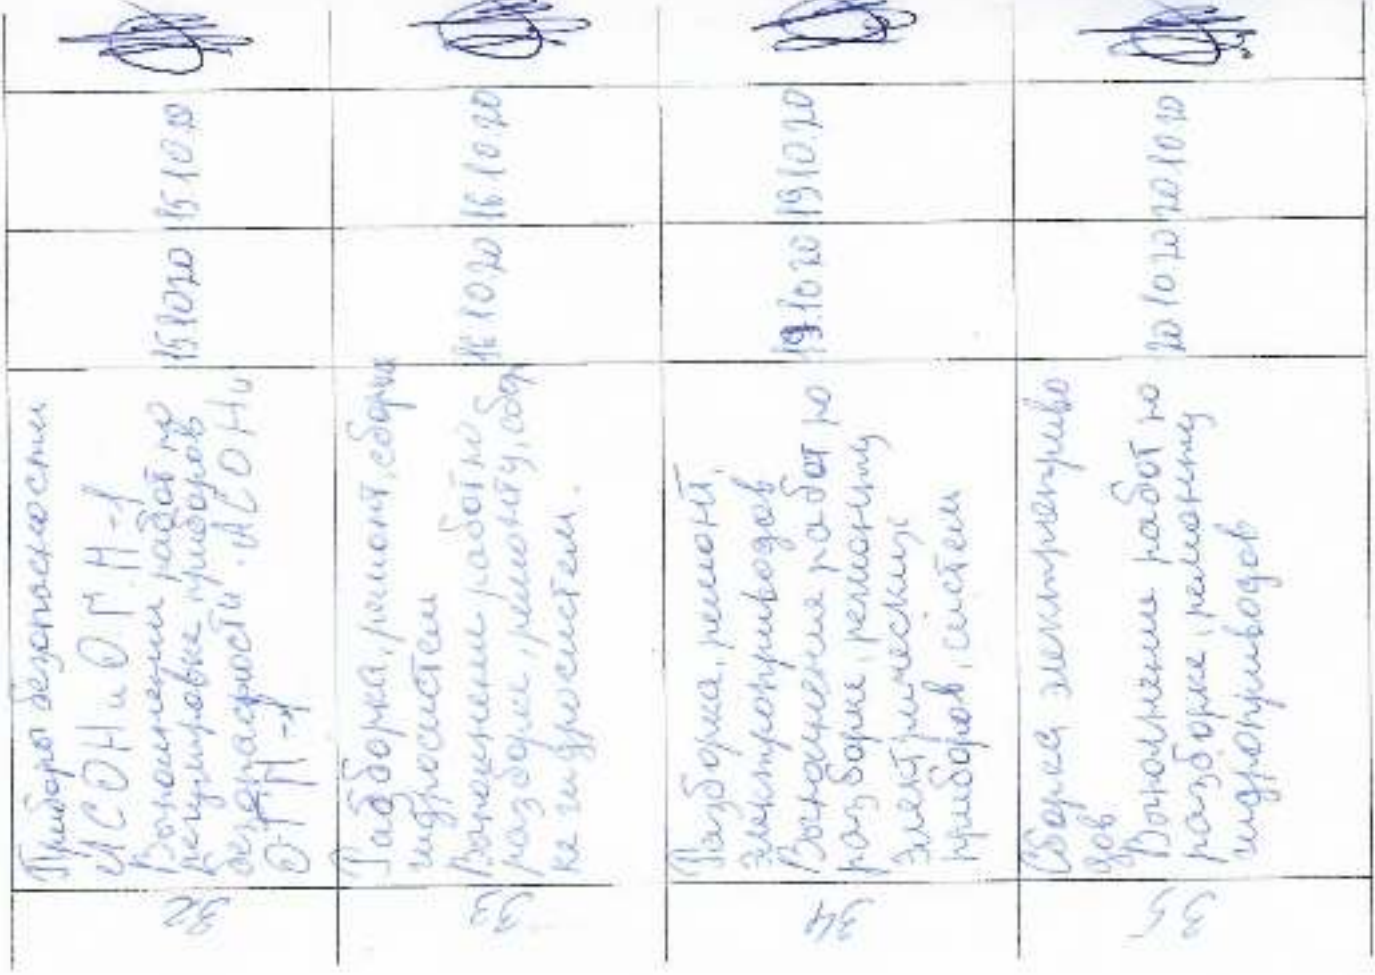 32
Прибора безопасности
АСОН и ОГМ-1
Выполнении работ по
регулировке приборов
безопасности. АСОН и
ОГМ-1
15.10.20
15.10.20
33
Разборка, ремонт, сборка
гидросистем
Выполнение работ по
разборке, ремонту, сбор
ке гидросистем.
16.10.20
16.10.20
34
Разборка, ремонт,
электроприводов
Выполнение работ по
разборке, ремонту
электрических
приборов, систем
19.10.20
19.10.20
35
Сборка электроприво
дов
Выполнение работ по
разборке, ремонту
гидроприводов
20.10.20
20.10.20